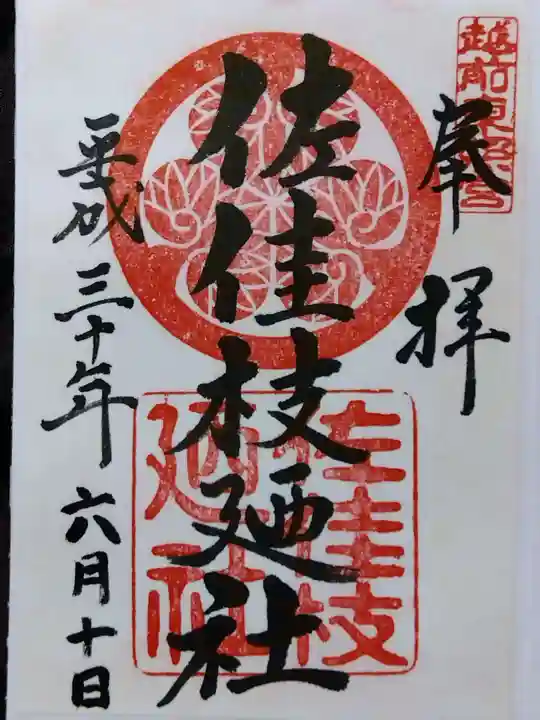 越前東照宮
奉拝
佐佳枝廼社
佐佳枝
廼社
平成三十年六月十日